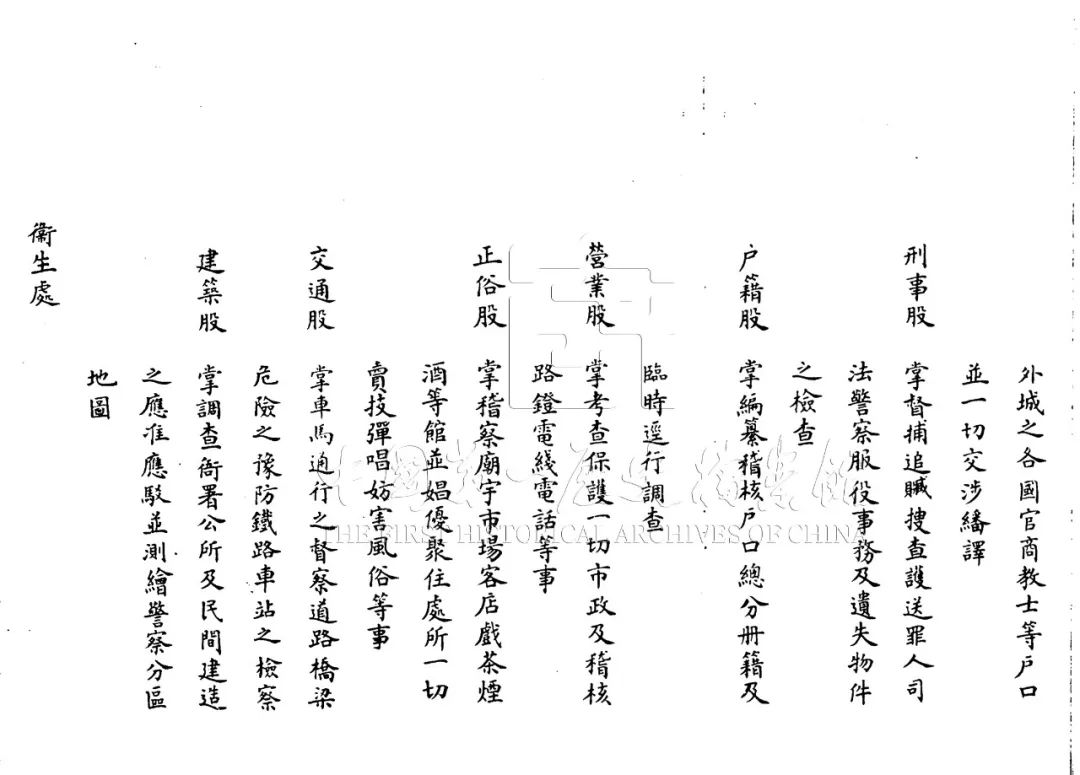 外城之各國官商教士等戶口
並一切交涉繙譯
刑事股 掌督捕追贓搜查護送罪人司
法警察服役事務及遺失物件
之檢查
戶籍股 掌編纂稽核戶口總分冊籍及
臨時逕行調查
營業股 掌考查保護一切市政及稽核
路鐙電綫電話等事
正俗股 掌稽察廟宇市場客店戲茶煙
酒等館並娼優聚住處所一切
賣技彈唱妨害風俗等事
交通股 掌車馬通行之督察道路橋梁
危險之豫防鐵路車站之檢察
建築股 掌調查衙署公所及民間建造
之應准應駁並測繪警察分區
地圖
衞生處
中國第一歷史檔案館
THE FIRST HISTORICAL ARCHIVES OF CHINA